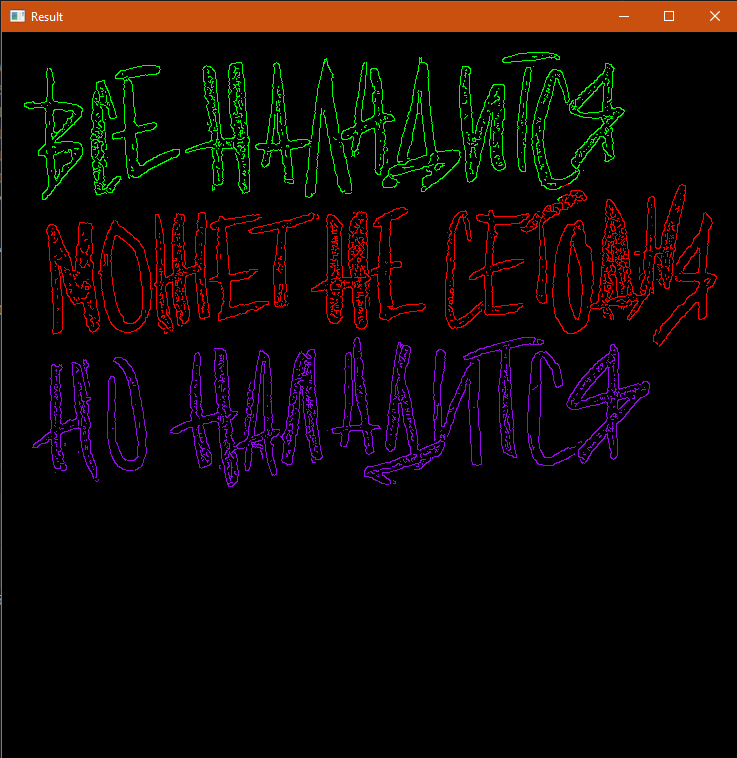 Result
ВСЕ НАЛАДИТСЯ
МОЖЕТ НЕ СЕГОДНЯ
НО НАЛАДИТСЯ